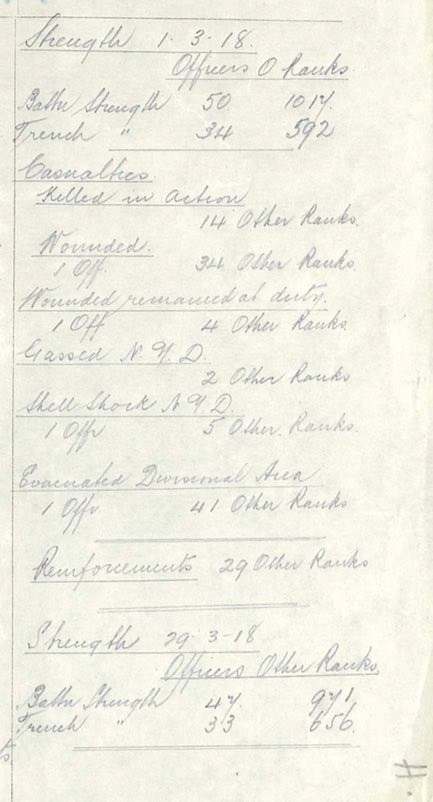 Strength 1. 3-18.
Officers O Ranks
Battn Strength 50 1017.
Trench " 34 592
Casualties.
Killed in Action
14 Other Ranks.
Wounded.
1 Off. 34 Other Ranks.
Wounded remained at duty.
1 Off 4 Other Ranks.
Gassed N. Y. D.
2 Other Ranks
Shell Shock N Y D.
1 Offr 5 Other. Ranks.
Evacuated Divisional Area
1 Offr 41 Other Ranks
Reinforcements 29 Other Ranks
Strength 29-3-18
Officers Other Ranks.
Battn Strength 47. 971.
Trench " 33 656.
H.